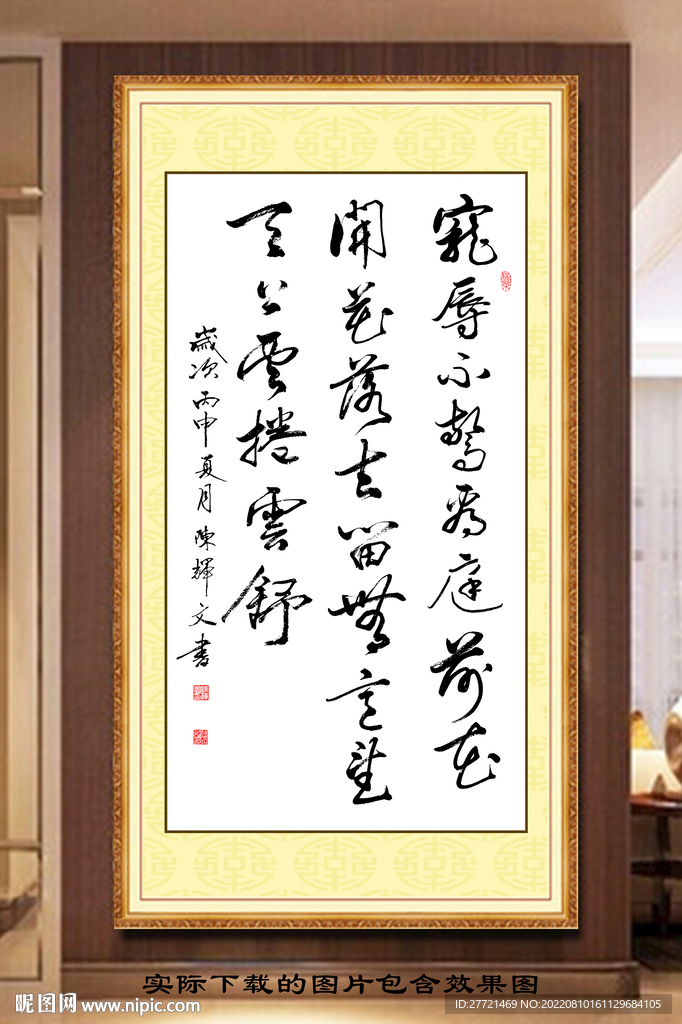 寵辱不驚看庭前花
開花落去留無意望
天上雲捲雲舒
歲次丙申夏月陳輝文書
实际下载的图片包含效果图
昵图网 www.nipic.com
ID:27721469 NO:20220810161129684105